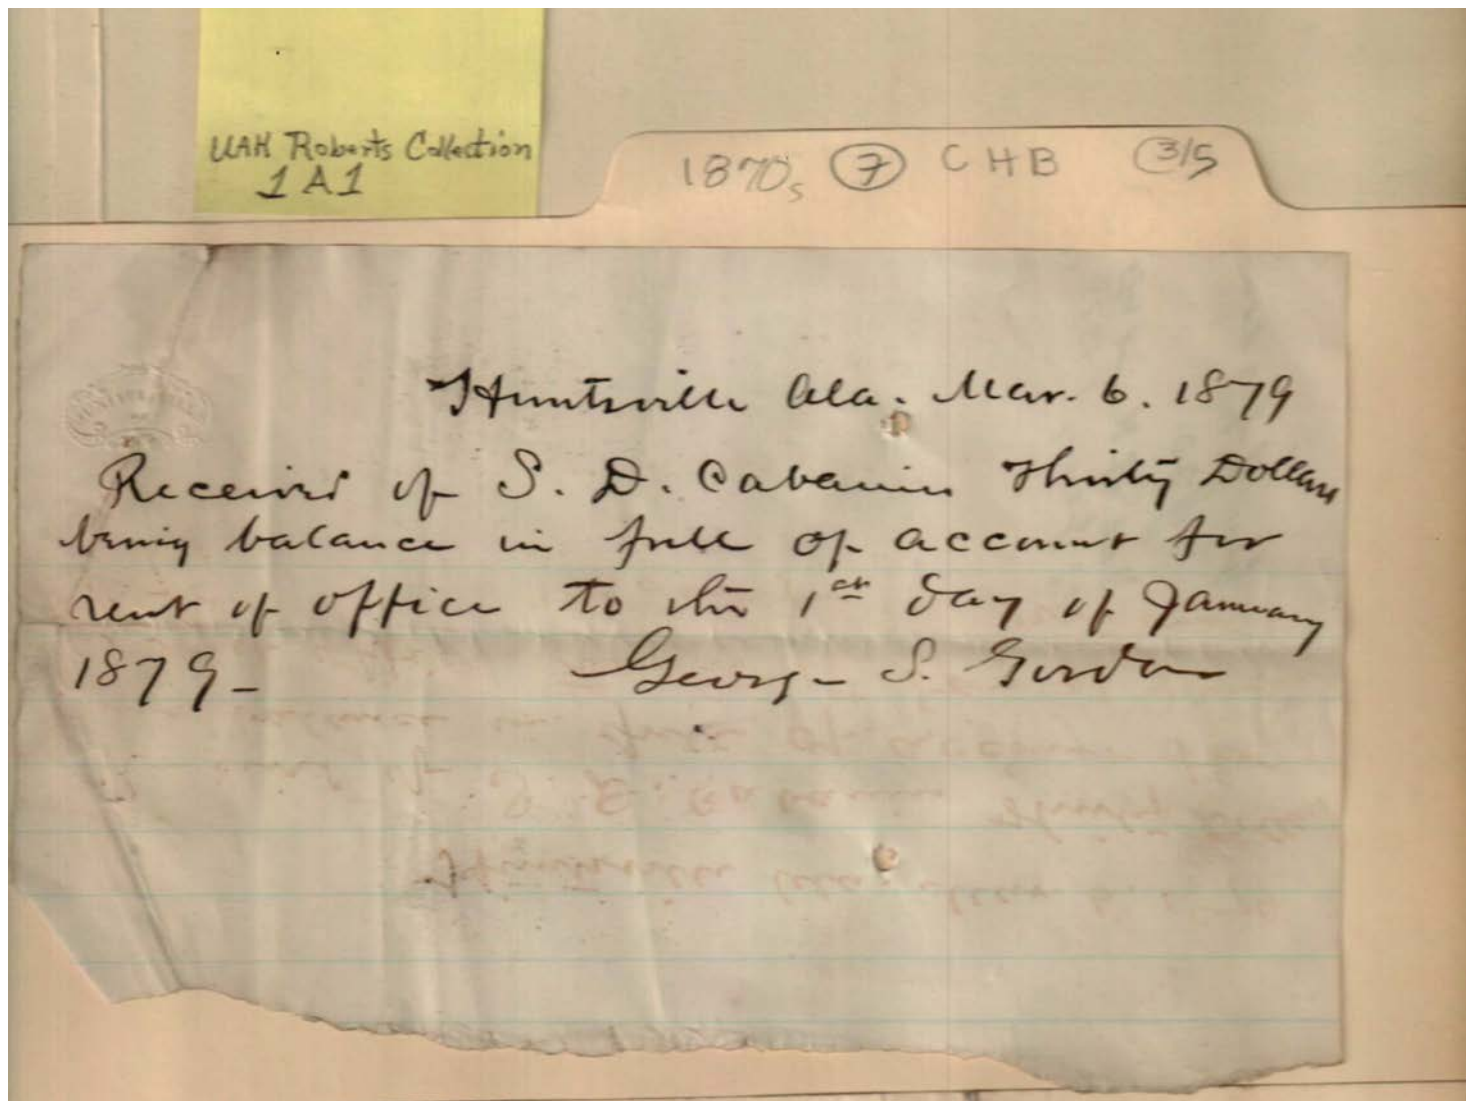 UAH Roberts Collection
1A1
1870s 7 CHB 3/5
Huntsville Ala. Mar. 6. 1879
Received of S. D. Cabaniss Thirty Dollars
being balance in full of account for
rent of office to the 1st day of January
1879_
George S. Gordon